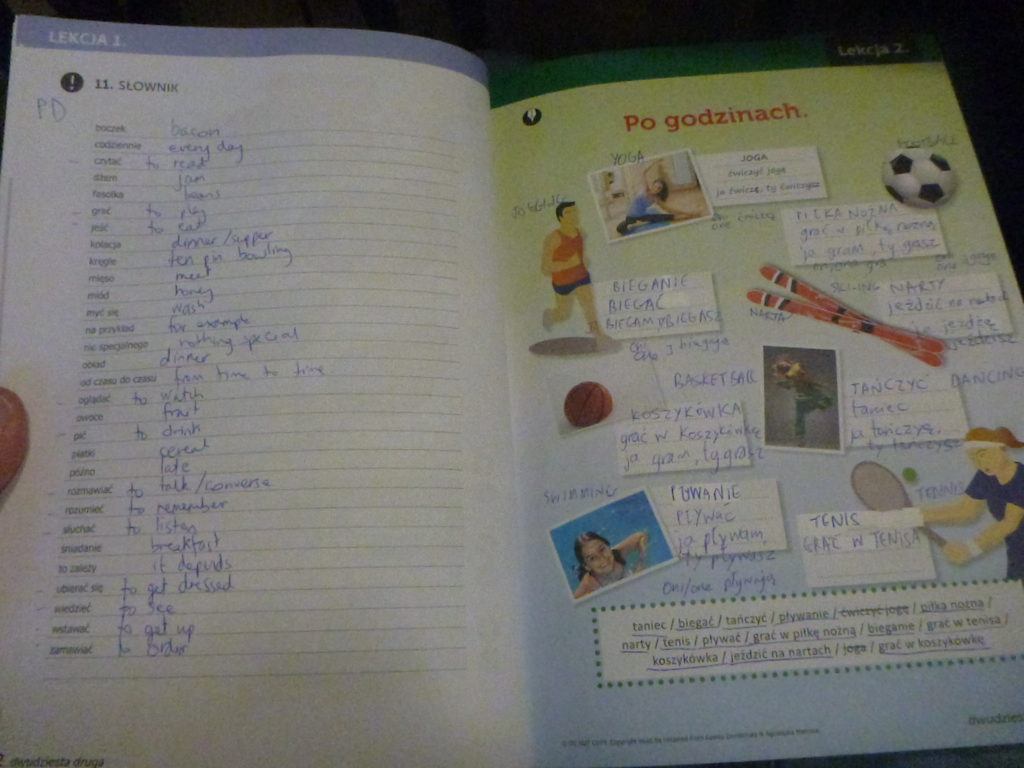 LEKCJA 1.
11. SŁOWNIK
PD
boczek bacon
codziennie every day
czytać to read
dżem jam
fasolka beans
grać to play
jeść to eat
kolacja dinner/supper
kręgle ten pin bowling
mięso meet
miód honey
myć się wash
na przykład for example
nic specjalnego nothing special
obiad dinner
od czasu do czasu from time to time
oglądać to watch
owoce fruit
pić to drink
płatki cereal
późno late
rozmawiać to talk/converse
rozumieć to remember
słuchać to listen
śniadanie breakfast
to zależy it depends
ubierać się to get dressed
wiedzieć to see
wstawać to get up
zamawiać to order
dwudziesta druga
Lekcja 2.
Po godzinach.
YOGA
JOGA
ćwiczyć jogę
ja ćwiczę, ty ćwiczysz
FOOTBALL
PIŁKA NOŻNA
grać w piłkę nożną
ja gram, ty grasz
JOGGING
BIEGANIE
BIEGAĆ
BIEGAM, BIEGASZ
SKIING NARTY
jeździć na nartach
jeżdżę
jeździsz
NARTY
BASKETBALL
KOSZYKÓWKA
grać w koszykówkę
ja gram, ty grasz
TAŃCZYĆ DANCING
taniec
ja tańczyę,
ty tańczysz
SWIMMING
PŁYWANIE
PŁYWAĆ
ja pływam,
ty pływasz
oni/one pływają
TENNIS
TENIS
GRAĆ W TENISA
taniec / biegać / tańczyć / pływanie / ćwiczyć jogę / piłka nożna /
narty / tenis / pływać / grać w piłkę nożną / bieganie / grać w tenisa /
koszykówka / jeździć na nartach / joga / grać w koszykówkę